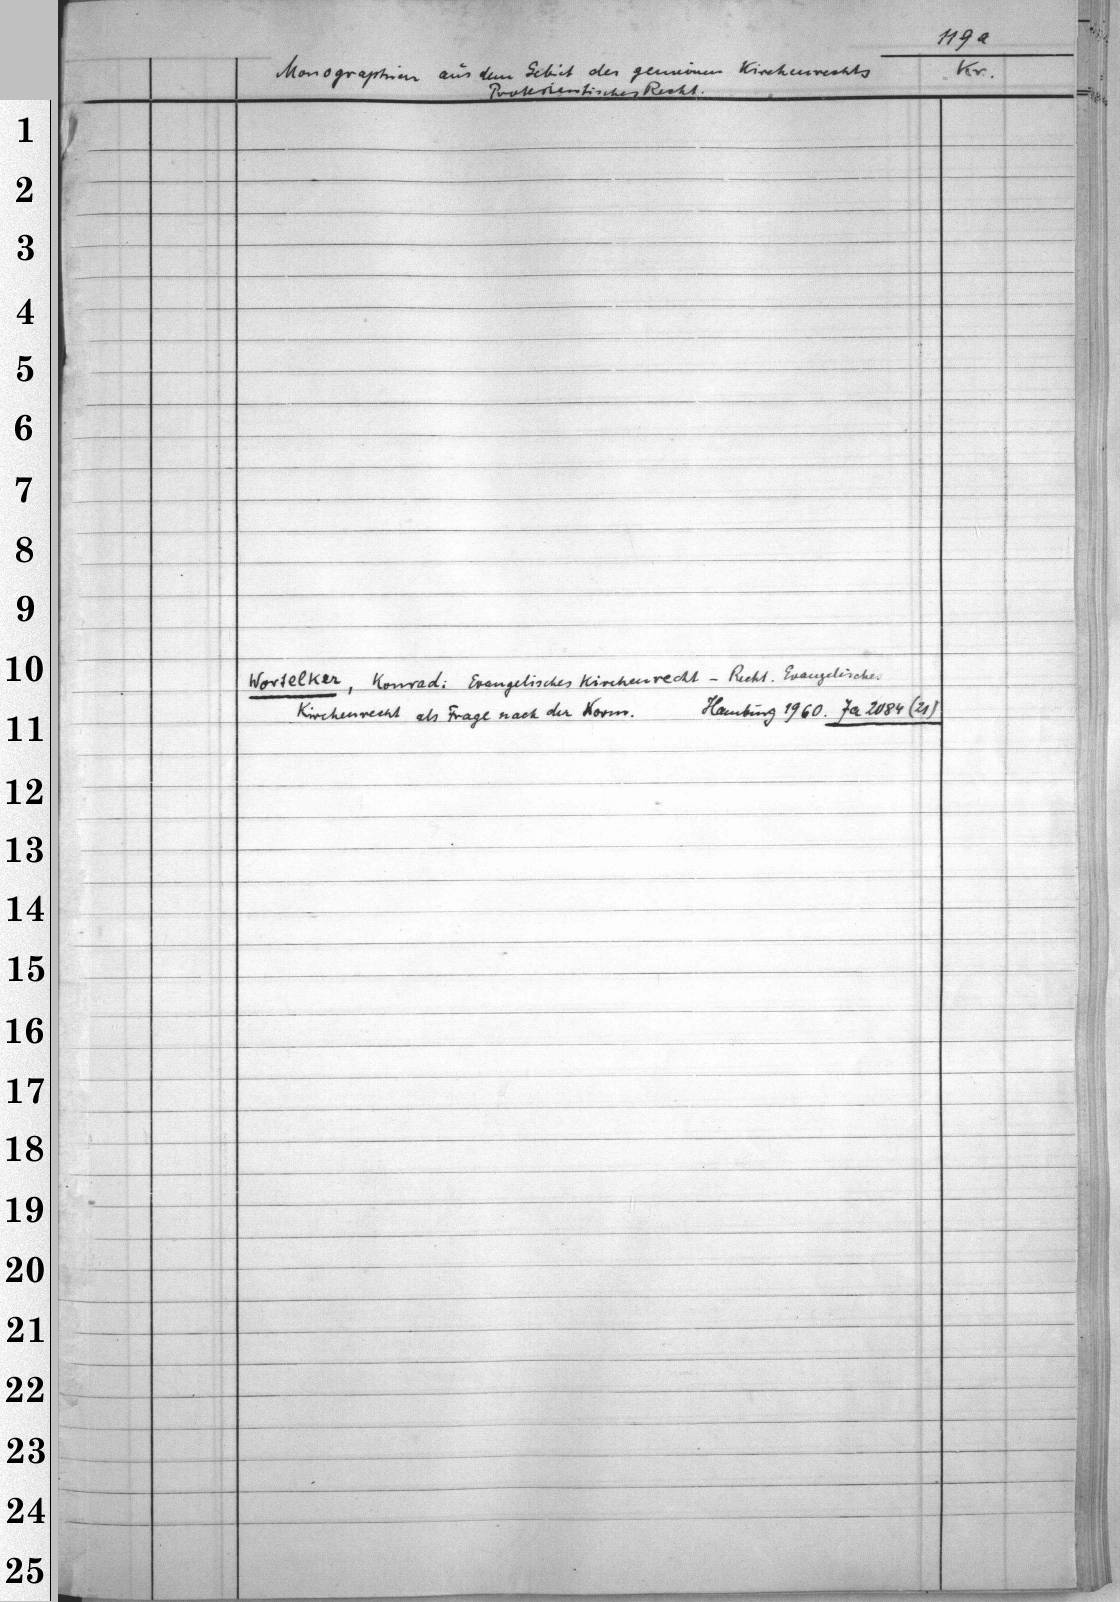 119a
Monographien aus dem Gebiet des gemeinen Kirchenrechts Kr.
Protestantisches Recht.
1
2
3
4
5
6
7
8
9
10
Wortelker, Konrad: Evangelisches Kirchenrecht – Recht. Evangelisches
Kirchenrecht als Frage nach der Norm. Hamburg 1960. Ja 2084 (21)
11
12
13
14
15
16
17
18
19
20
21
22
23
24
25